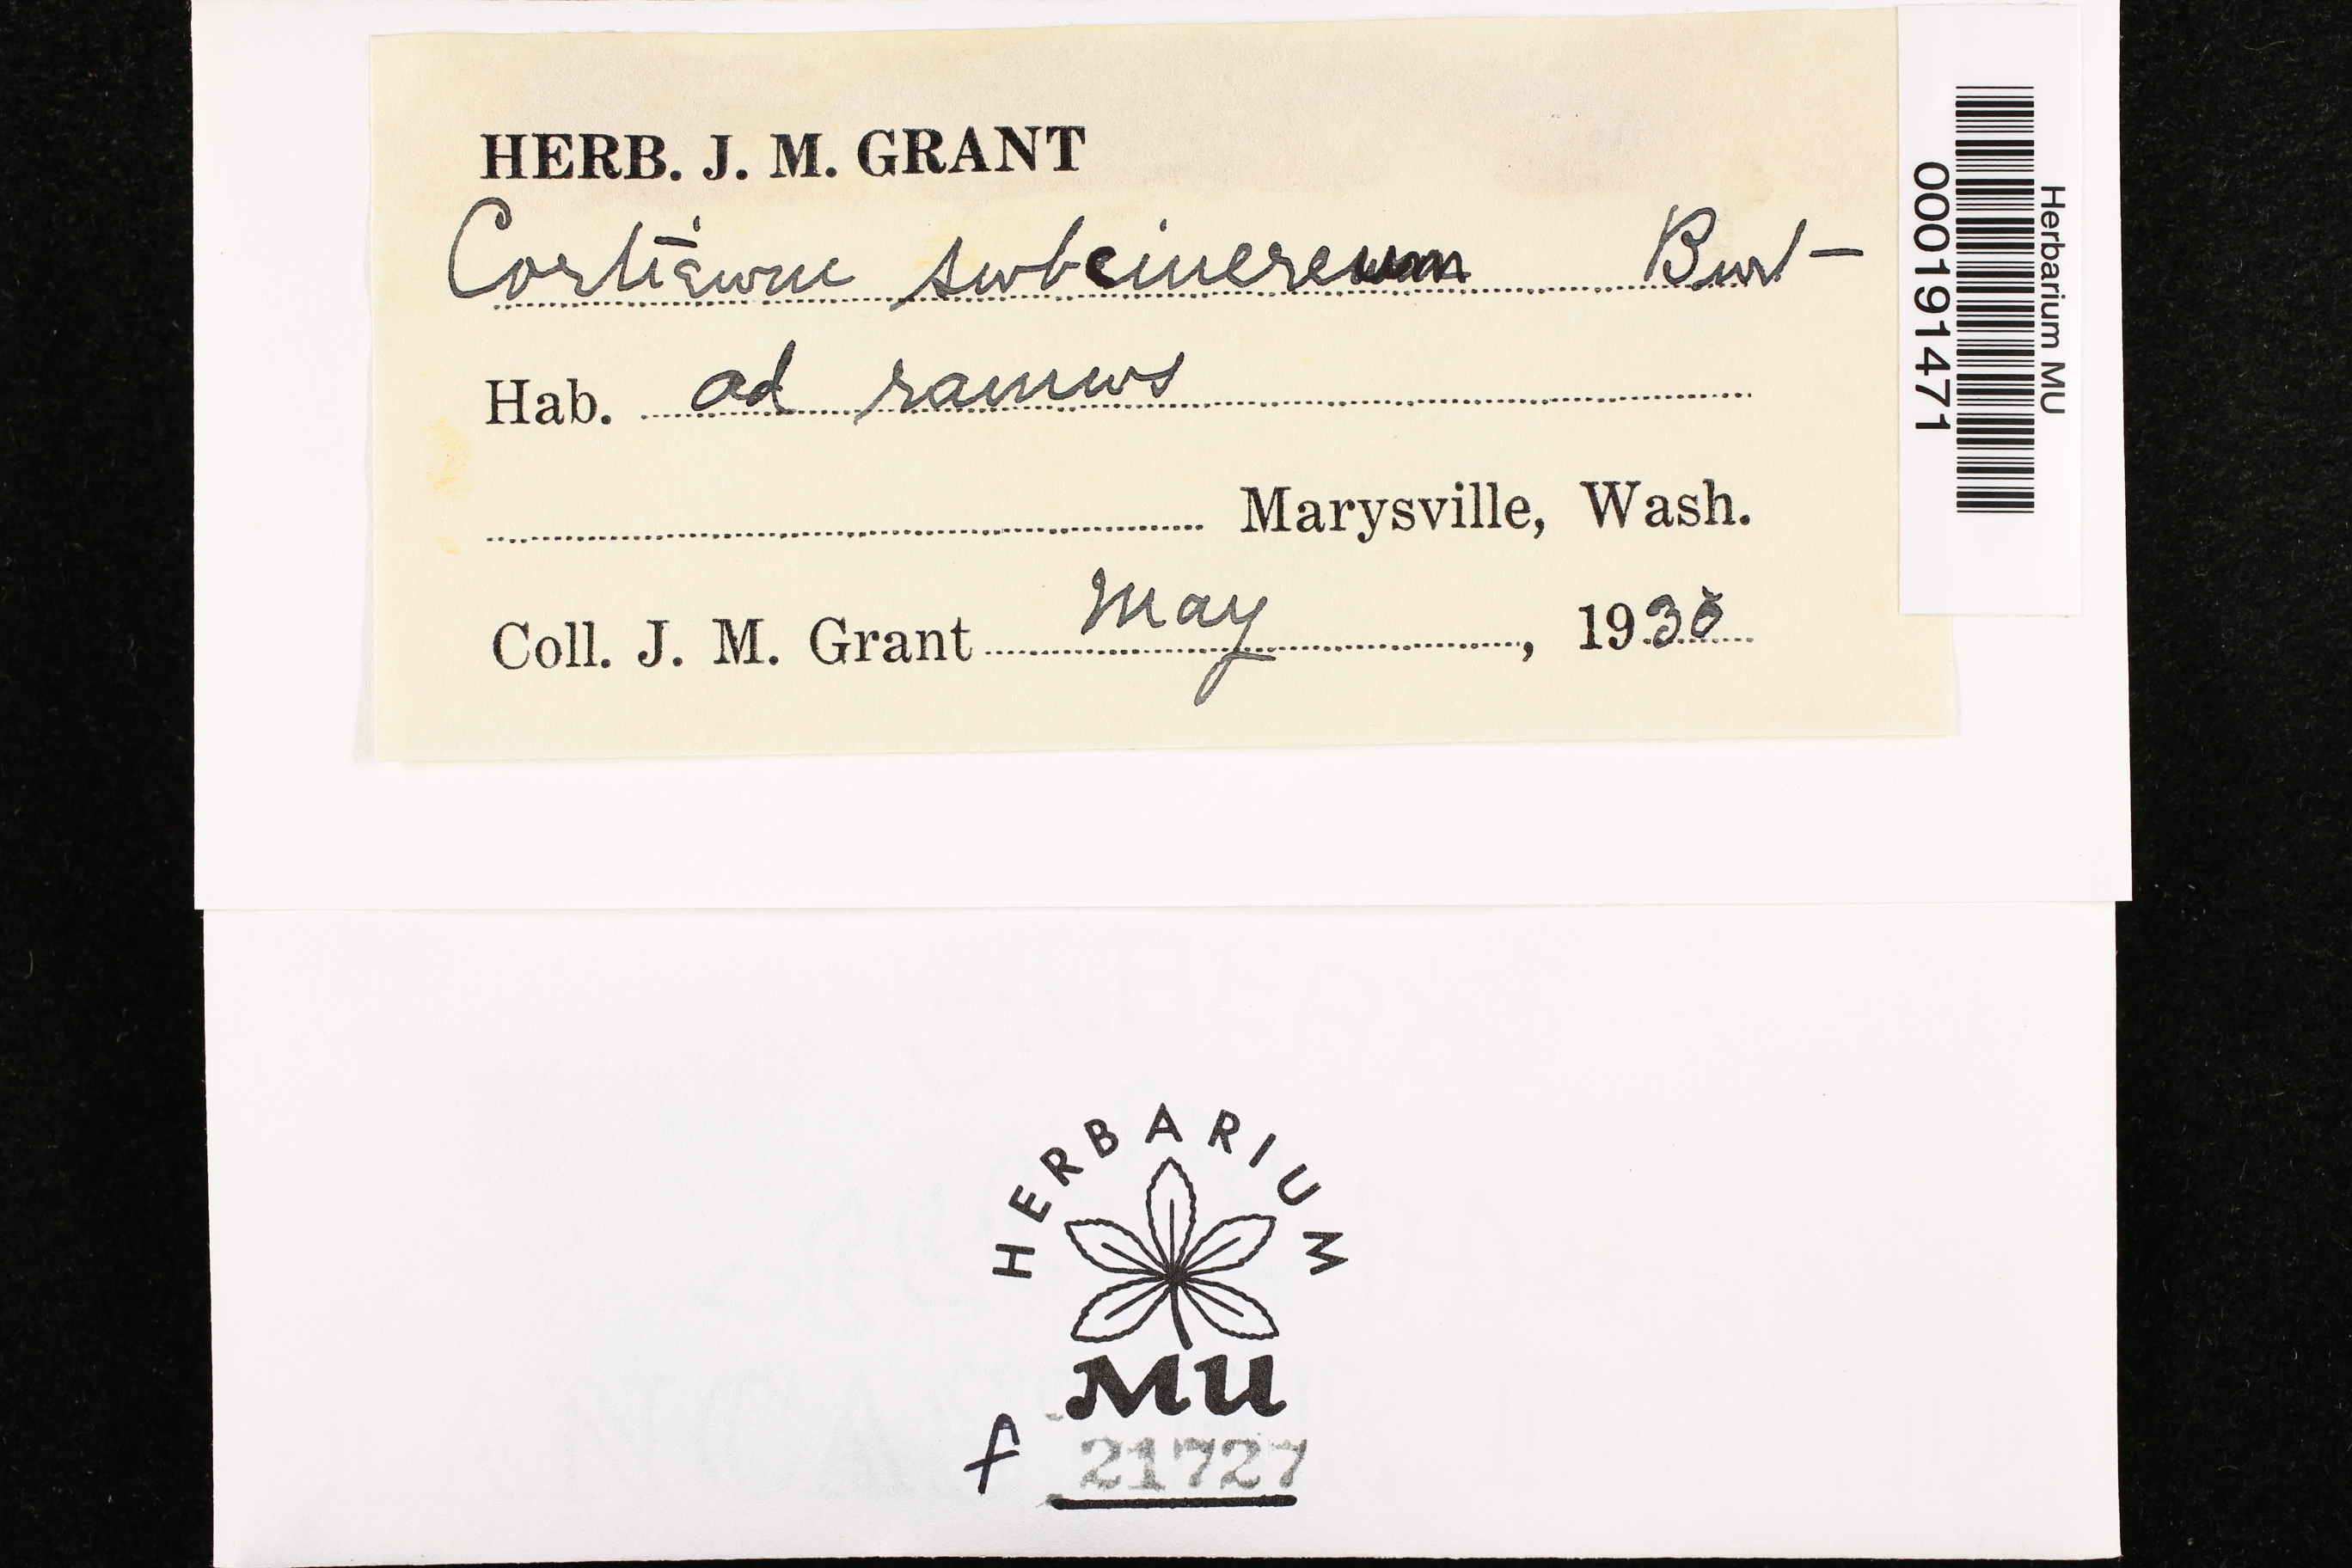 HERB. J. M. GRANT
Corticium subcinereum Burt
Hab. ad ramus
Marysville, Wash.
Coll. J. M. Grant May, 1930
Herbarium MU
000191471
HERBARIUM
MU
f 21727